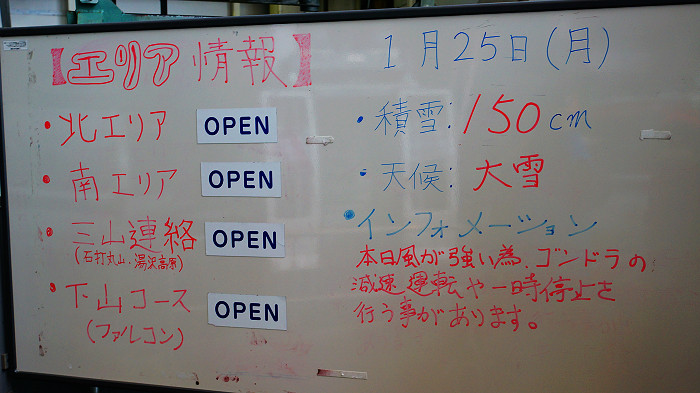 【エリア情報】
・北エリア OPEN
・南エリア OPEN
・三山連絡 OPEN
(石打丸山・湯沢高原)
・下山コース OPEN
(ファルコン)
1月25日(月)
・積雪:150cm
・天候:大雪
・インフォメーション
本日風が強い為、ゴンドラの
減速運転や一時停止を
行う事があります。